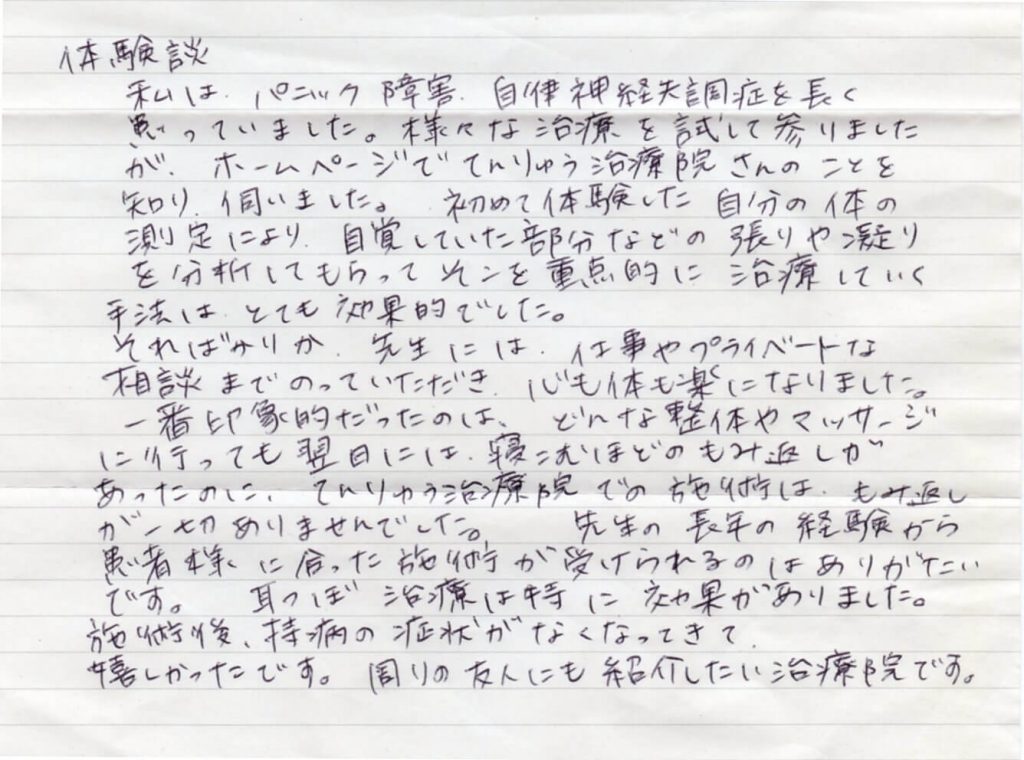 体験談
私は、パニック障害、自律神経失調症を長く
患っていました。様々な治療を試して参りました
が、ホームページでてんりゅう治療院さんのことを
知り、伺いました。 初めて体験した自分の体の
測定により、自覚していた部分などの張りや凝り
を分析してもらってそこを重点的に治療していく
手法は、とても効果的でした。
そればかりか、先生には、仕事やプライベートな
相談までのっていただき、心も体も楽になりました。
一番印象的だったのは、どんな整体やマッサージ
に行っても翌日には、寝こむほどのもみ返しが
あったのに、てんりゅう治療院での施術は、もみ返し
が一切ありませんでした。 先生の長年の経験から
患者様に合った施術が受けられるのはありがたい
です。 耳つぼ治療は特に効果がありました。
施術後、持病の症状がなくなってきて
嬉しかったです。 周りの友人にも紹介したい治療院です。